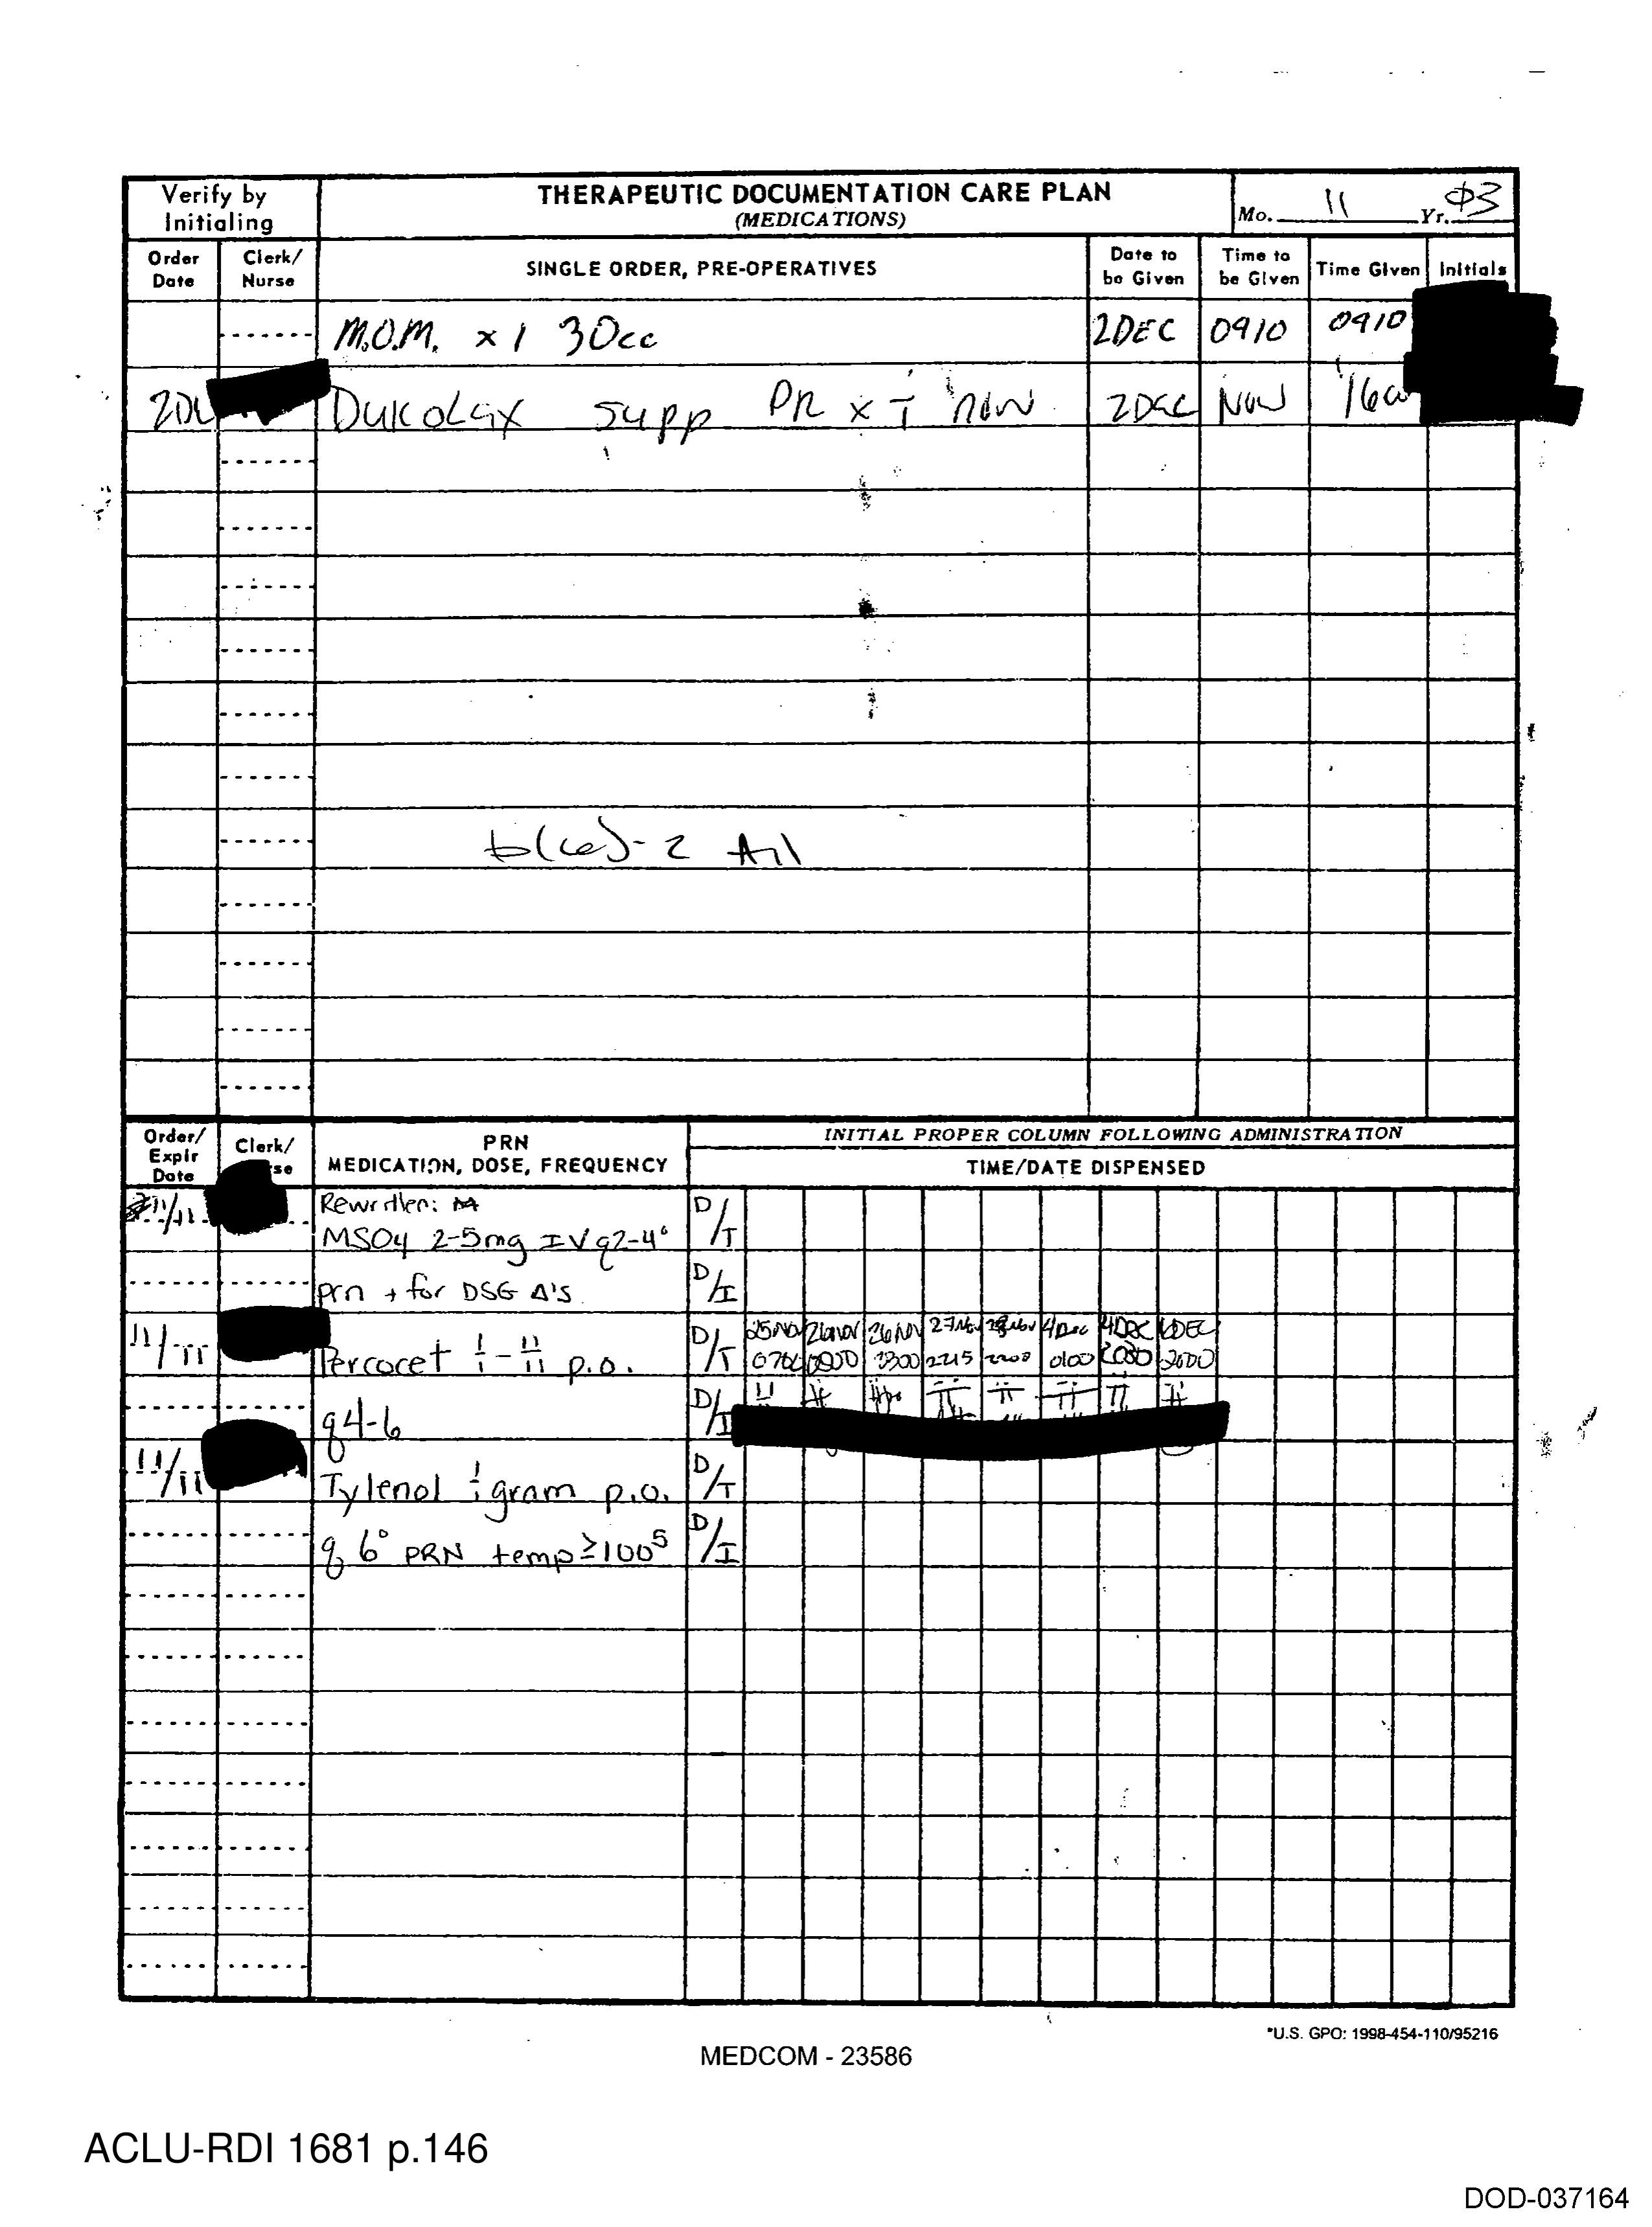 Verify by Initialing
THERAPEUTIC DOCUMENTATION CARE PLAN
(MEDICATIONS)
Mo. 11 Yr. 03
Order Date
Clerk/ Nurse
SINGLE ORDER, PRE-OPERATIVES
Date to be Given
Time to be Given
Time Given
Initials
M.O.M. x 1 30cc 2DEC 0910 0910
Dukolax supp PR x T now 2DEC NOW
b(6)-2 All
Order/ Expir Date
Clerk/
PRN
MEDICATION, DOSE, FREQUENCY
INITIAL PROPER COLUMN FOLLOWING ADMINISTRATION
TIME/DATE DISPENSED
Rewritten:
MSO4 2-5mg IV q2-4° D/T
prn + for DSG Δ'S D/I
11/11 Percocet i - ii p.o. D/T
25NOV 26NOV 26NOV 27NOV 28NOV 4Dec 4DEC 6DEC
2300 2215 2200 0100 2000 2000
q4-6 D/I
11/11 Tylenol i gram p.o. D/T
q 6° PRN temp ≥100⁵ D/I
*U.S. GPO: 1998-454-110/95216
MEDCOM - 23586
ACLU-RDI 1681 p.146
DOD-037164